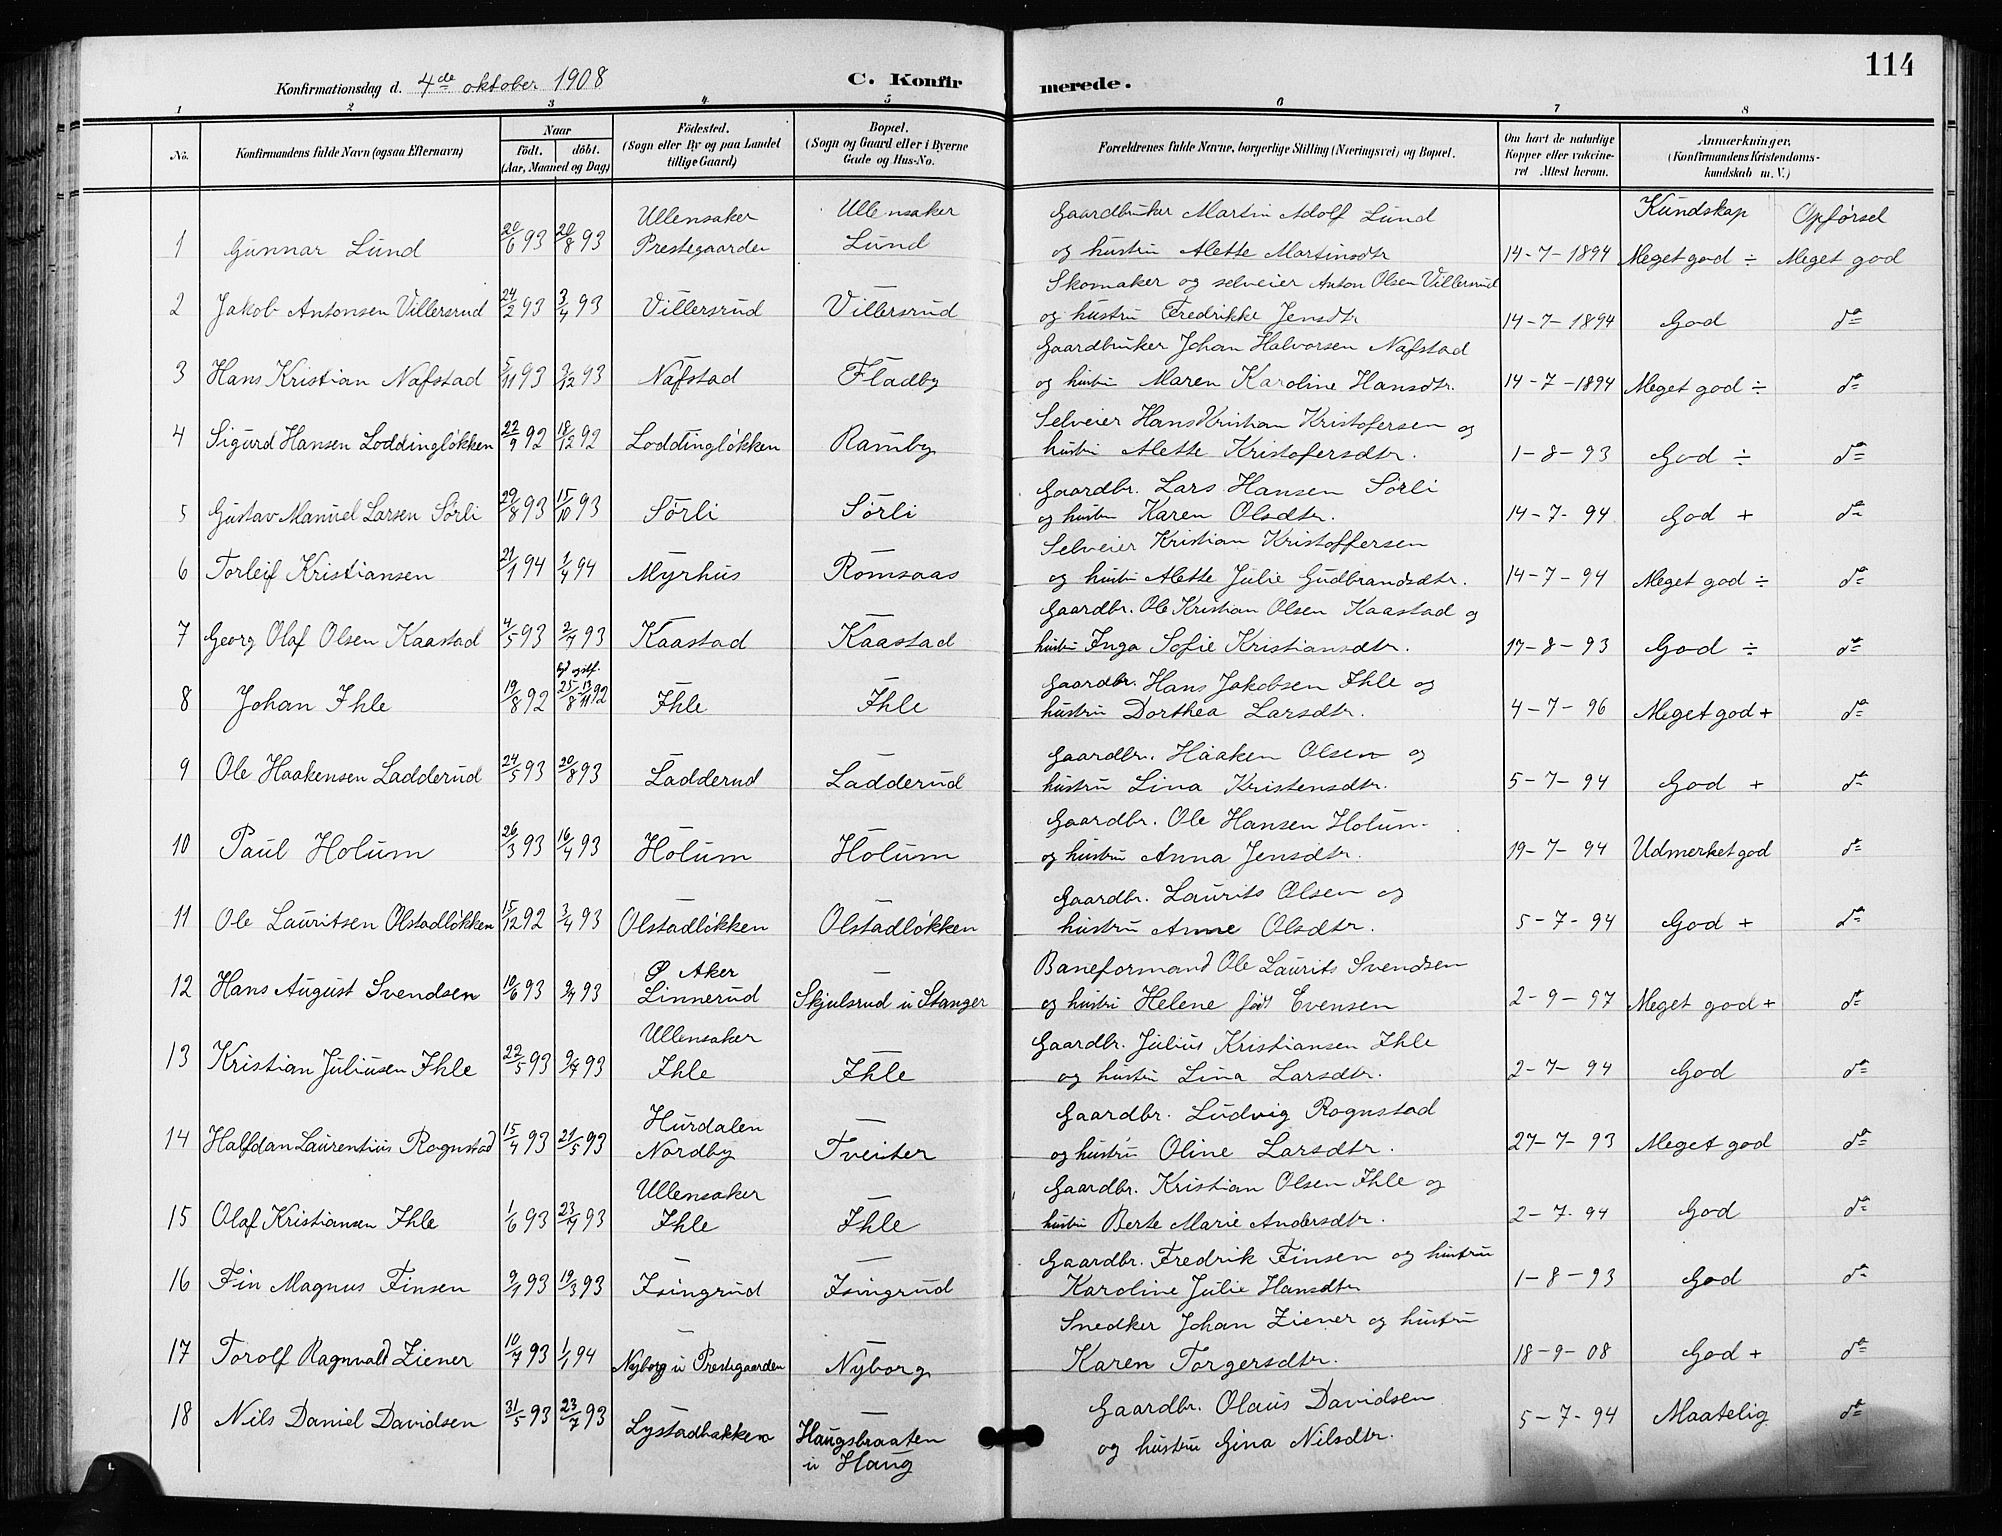 114
Konfirmationsdag d. 4de oktober 1908
C. Konfirmerede.
1 2 3 4 5 6 7 8
No.
Konfirmandens fulde Navn (ogsaa Efternavn)
Naar
födt. döbt.
(Aar, Maaned og Dag)
Födested.
(Sogn eller By og paa Landet
tillige Gaard)
Bopæl.
(Sogn og Gaard eller i Byerne
Gade og Hus-No.
Forældrenes fulde Navne, borgerlige Stilling (Næringsvei) og Bopæl.
Om havt de naturlige
Kopper eller vakcine-
ret Attest herom.
Anmærkninger,
(Konfirmandens Kristendoms-
kundskab m. V.)
Kundskap Opførsel
Ullensaker Ullensaker Gaardbruker Martin Adolf Lund
1 Gunnar Lund 20/6 93 20/8 93 Prestegaarden Lund og hustru Alette Martinsdtr 14-7-1894 Meget god ÷ Meget god
Skomaker og selveier Anton Olsen Villersrud
2 Jakob Antonsen Villersrud 24/2 93 3/4 93 Villersrud Villersrud og hustru Fredrikke Jensdtr 14-7-1894 God do
Gaardbruker Johan Halvorsen Nafstad
3 Hans Kristian Nafstad 5/11 93 3/12 93 Nafstad Fladby og hustru Maren Karoline Hansdtr. 14-7-1894 Meget god ÷ do
Selveier Hans Kristian Kristofersen og
4 Sigurd Hansen Loddingløkken 22/9 92 18/12 92 Loddingløkken Ramby hustru Alette Kristofersdtr. 1-8-93 God ÷ do
Gaardbr. Lars Hansen Sørli
5 Gustav Manuel Larsen Sørli 29/8 93 15/10 93 Sørli Sørli og hustru Karen Olsdtr. 14-7-94 God + do
Selveier Kristian Kristoffersen
6 Torleif Kristiansen 21/1 94 1/4 94 Myrhus Romsaas og hustru Alette Julie Gudbrandsdtr. 14-7-94 Meget god ÷ do
Gaardbr. Ole Kristian Olsen Kaastad og
7 Georg Olaf Olsen Kaastad 4/5 93 2/7 93 Kaastad Kaastad hustru Inga Sofie Kristiansdtr. 17-8-93 God ÷ do
Gaardbr. Hans Jakobsen Ihle og
8 Johan Ihle 19/8 92 25/8 13/11 92 Ihle Ihle hustru Dorthea Larsdtr. 4-7-96 Meget god + do
Gaardbr. Haaken Olsen og
9 Ole Haakensen Ladderud 24/5 93 20/8 93 Ladderud Ladderud hustru Lina Kristensdtr. 5-7-94 God + do
Gaardbr. Ole Hansen Holum
10 Paul Holum 26/3 93 16/4 93 Holum Holum og hustru Anna Jensdtr. 19-7-94 Udmerket god do
Gaardbr. Laurits Olsen og
11 Ole Lauritsen Olstadløkken 15/12 92 3/4 93 Olstadløkken Olstadløkken hustru Anne Olsdtr. 5-7-94 God + do
Ø Aker Baneformand Ole Laurits Svendsen
12 Hans August Svendsen 10/6 93 93 Linnerud Skjulsrud u Stanger og hustru Helene født Evensen 2-9-97 Meget god + do
Ullensaker Gaardbr. Julius Kristiansen Ihle
13 Kristian Juliusen Ihle 22/5 93 9/7 93 Ihle Ihle og hustru Lina Larsdtr. 2-7-94 God do
Hurdalen Gaardbr. Ludvig Rognstad
14 Halfdan Laurentius Rognstad 15/4 93 21/5 93 Nordby Tveiter og hustru Oline Larsdtr. 27-7-93 Meget god do
Ullensaker Gaardbr. Kristian Olsen Ihle og
15 Olaf Kristiansen Ihle 1/6 93 93 Ihle Ihle hustru Berte Marie Andersdtr. 2-7-94 God do
Gaardbr. Fredrik Finsen og hustru
16 Fin Magnus Finsen 9/1 93 19/3 93 Isingrud Isingrud Karoline Julie Hansdtr 1-8-93 God do
Snedker Johan Ziener og hustru
17 Torolf Ragnvald Ziener 10/7 93 1/1 94 Nyborg u Prestegaarden Nyborg Karen Torgersdtr. 18-9-08 God + do
Gaardbr. Olaus Davidsen
18 Nils Daniel Davidsen 31/5 93 23/7 93 Lystadbakken Haugsbraaten 5-7-94 Maatelig do
u Haug og hustru Gina Nilsdtr.